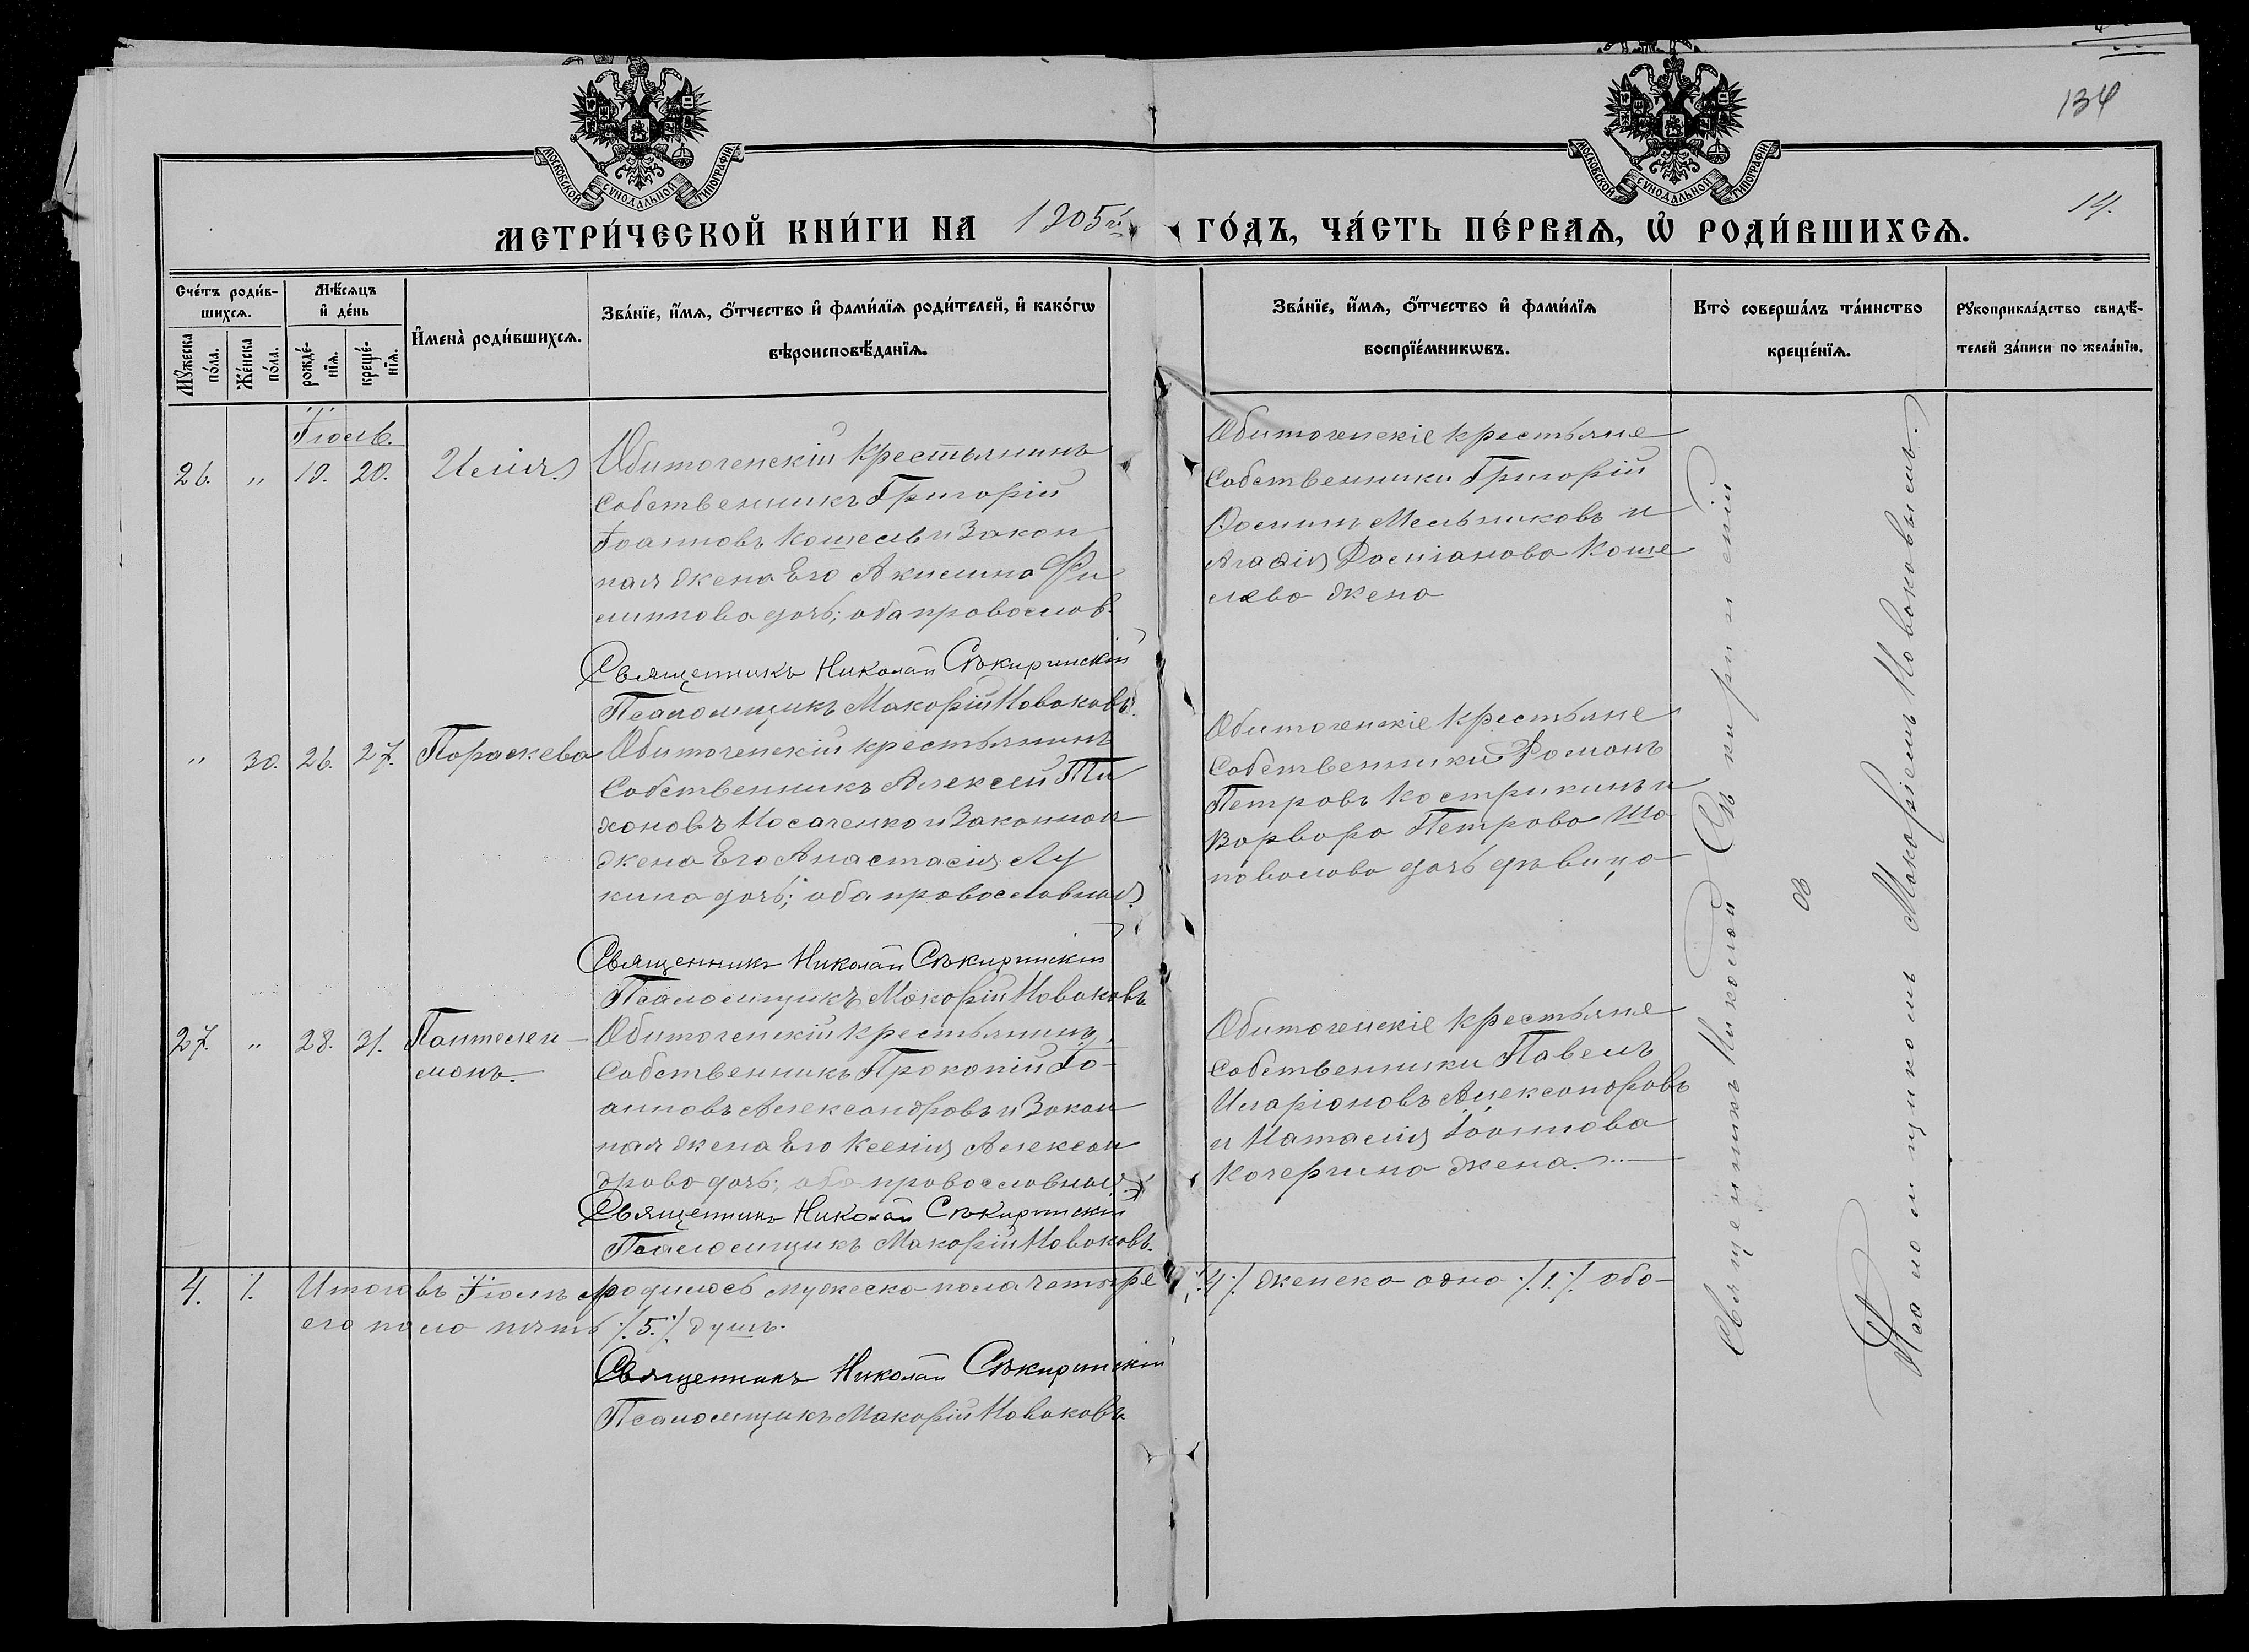 134
14.
МОСКОВСКОЙ СУНОДАЛЬНОЙ ТИПОГРАФІИ
МОСКОВСКОЙ СУНОДАЛЬНОЙ ТИПОГРАФІИ
МЕТРИ́ЧЕСКОЙ КНИ́ГИ НА 1905 го́ ГО́ДЪ, ЧА́СТЬ ПЕ́РВАЯ, Ѡ҆ РОДИ́ВШИХСЯ.
Сче́тъ роди́в-
шихся.
Мꙋжеска
по́ла.
Же́нска
по́ла.
Мѣ́сяцъ
и҆ де́нь
рожде́-
нїя.
креще́-
нїя.
И҆мена̀ роди́вшихся.
Зва́нїе, и҆́мя, ѻ҆́тчество и҆ фами́лїя роди́телей, и҆ како́гѡ
вѣроисповѣ́данїя.
Зва́нїе, и҆́мя, ѻ҆́тчество и҆ фами́лїя
воспрїе́мникѡвъ.
Кто̀ соверша́лъ та́инство
креще́нїя.
Рꙋкоприкла́дство свидѣ́-
телей за́писи по жела́нїю.
Іюль.
26. " 19. 20. Илія
Обиточенскій крестьянинъ
собственникъ Григорій
Іоанновъ Кошель и Закон
ная жена Его Акилина Фи
липпова дочь; оба православ.
Священникъ Николай Сѣкиринскій
Псаломщикъ Макарій Новаковъ.
Обиточенскіе крестьяне
собственники Григорій
Мельниковъ и
Агафія Касіанова Коше
лева жена
" 30. 26. 27. Параскева
Обиточенскій крестьянинъ
Собственникъ Алексѣй Ти
хоновъ Носаченко и Законная
жена Его Анастасія Лу
кина дочь; оба православныя
Священникъ Николай Сѣкиринскій
Псаломщикъ Макарій Новаковъ
Обиточенскіе крестьяне
Собственники Романъ
Петровъ Кострикинъ и
Варвара Петрова Ша
повалова дочь дѣвица
27. " 28. 31. Пантелеи-
монъ.
Обиточенскій крестьянинъ,
Собственникъ Прокопій Іо-
анновъ Александровъ и Закон
ная жена Его Ксенія Алексан
дрова дочь; оба православныя
Священникъ Николай Сѣкиринскій
Псаломщикъ Макарій Новаковъ.
Обиточенскіе крестьяне
собственники Павелъ
Иларіоновъ Александровъ
и Наталія Іоаннова
Кочергина жена.
Священникъ Николай Сѣкиринскій
съ
Псаломщикомъ Макаріемъ Новаковымъ.
4. 1. Итого въ Іюлѣ родилось мужеска пола четыре ./.4./. женска одно ./.1./. обо-
его пола пять ./.5./. душъ.
Священникъ Николай Сѣкиринскій
Псаломщикъ Макарій Новаковъ